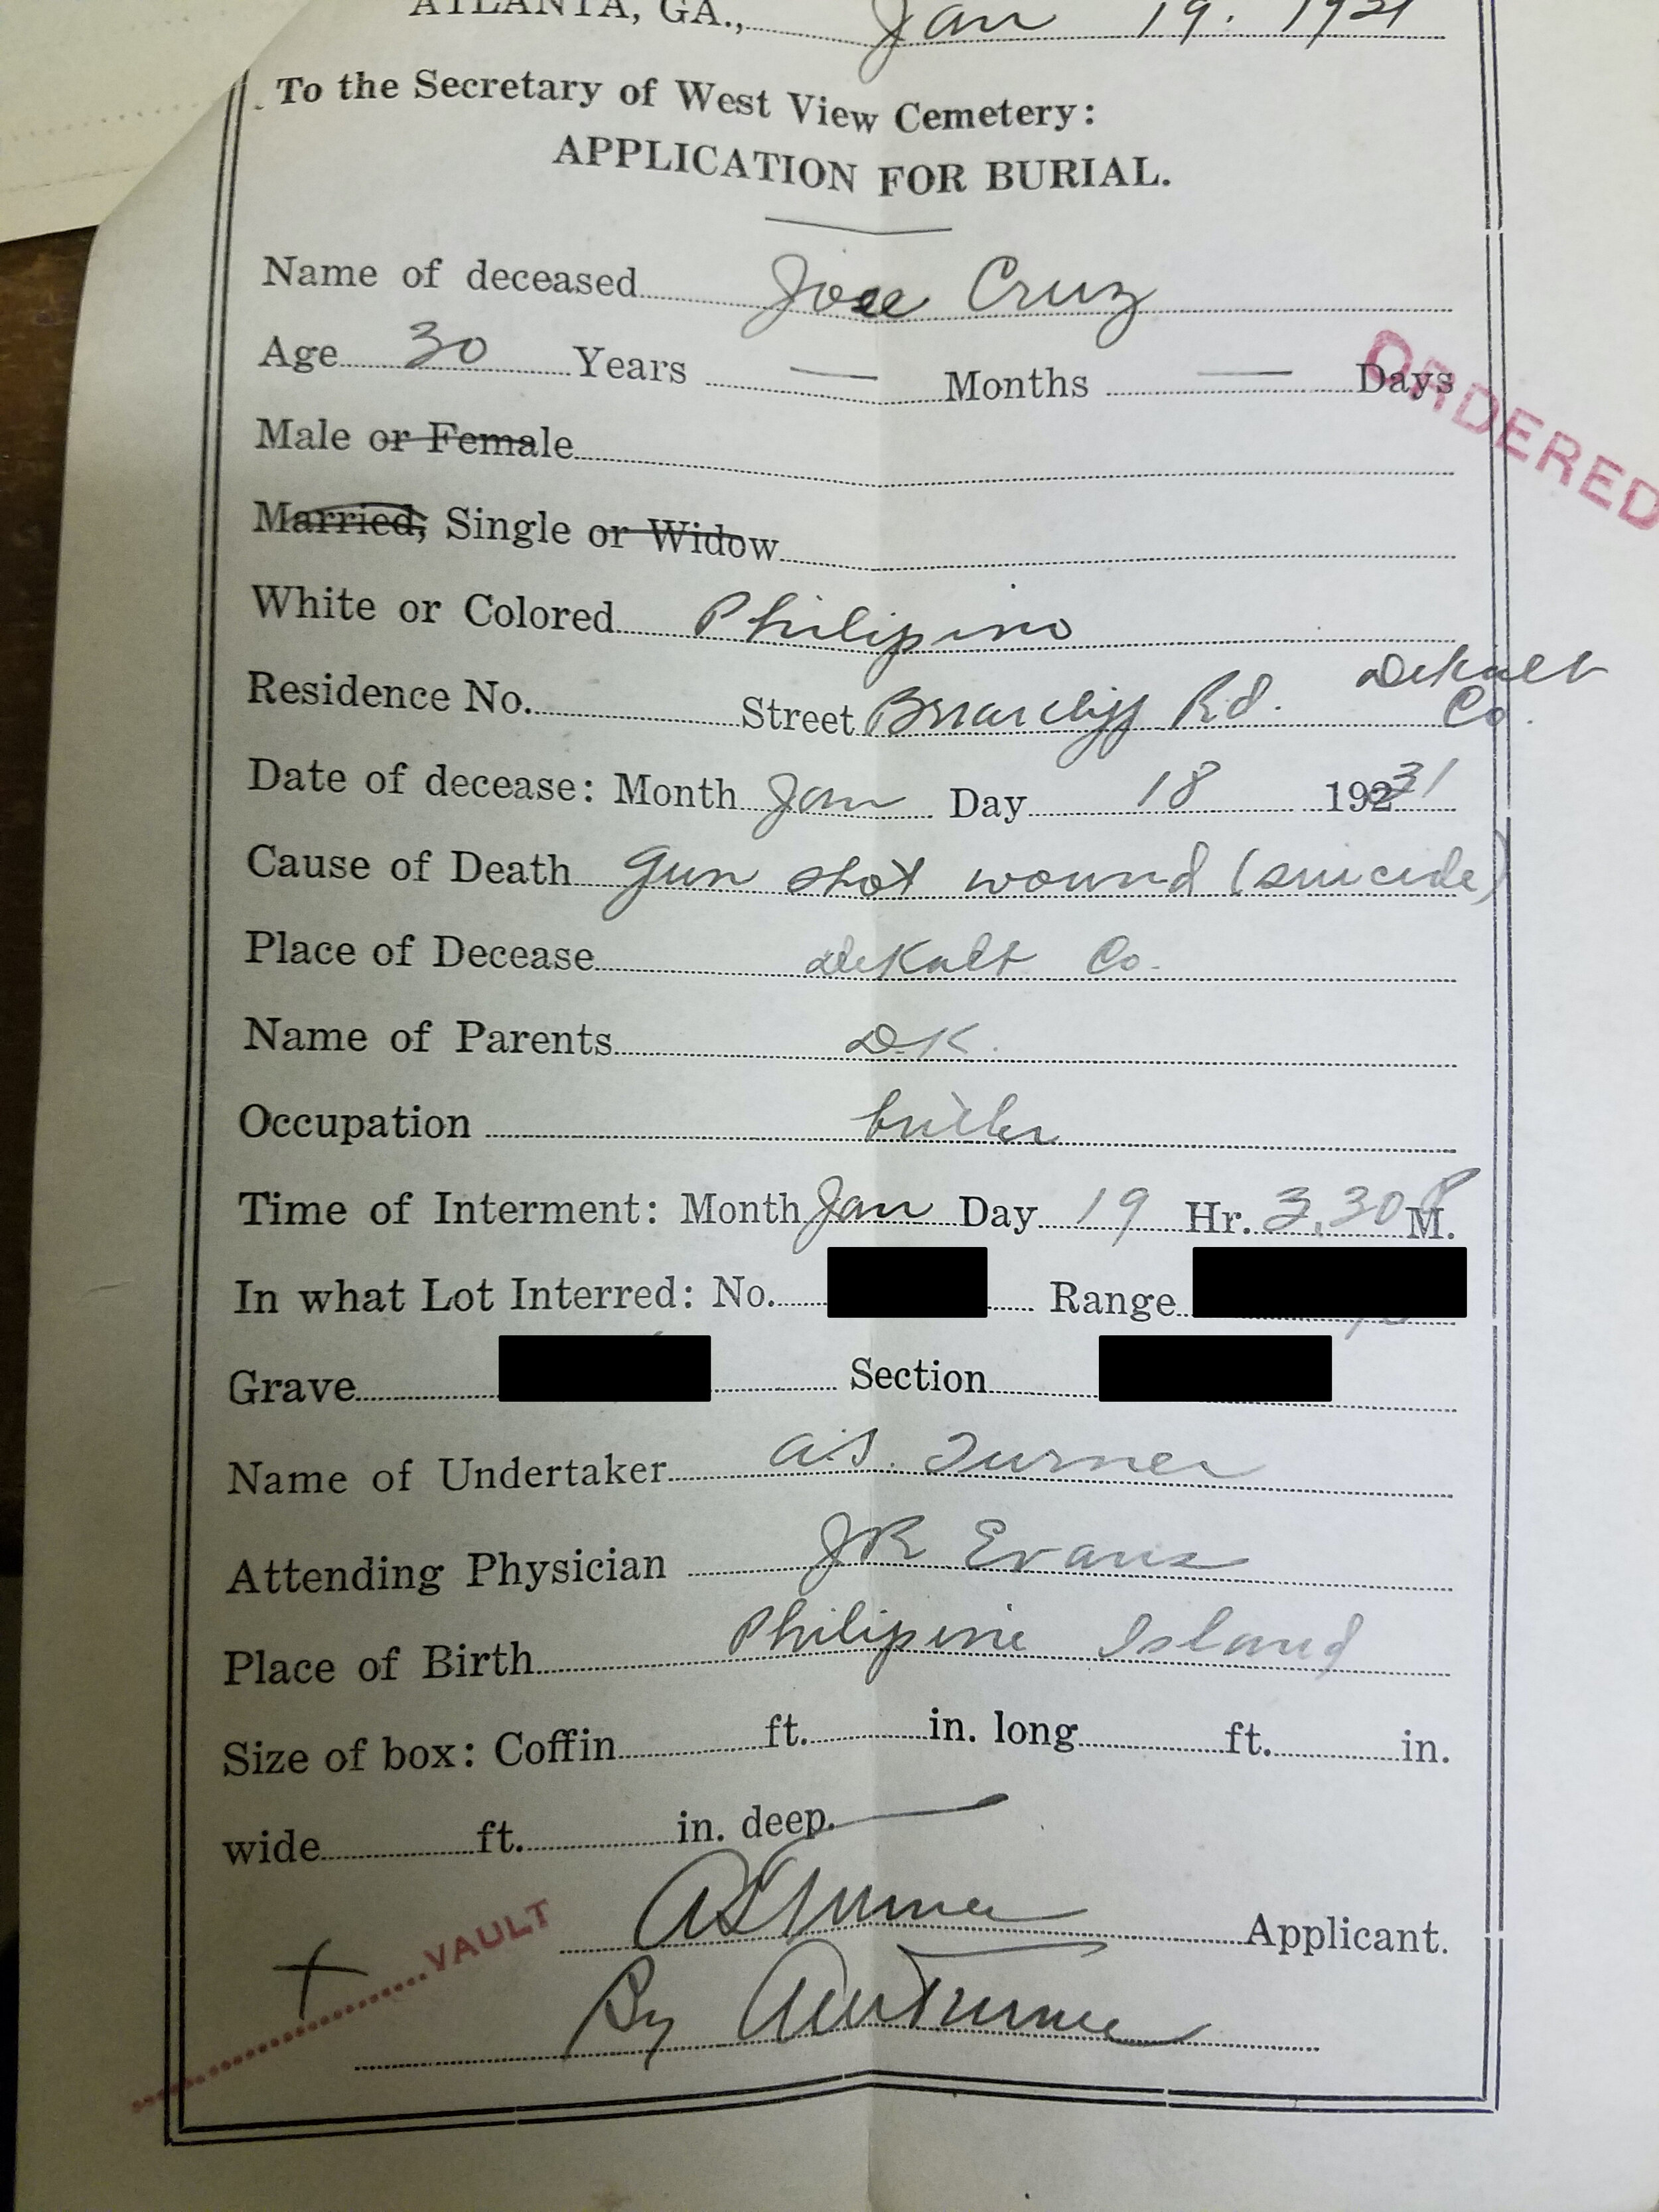 ATLANTA, GA., Jan 19. 1931
To the Secretary of West View Cemetery:
APPLICATION FOR BURIAL.
Name of deceased Jose Cruz
Age 30 Years — Months — Days
ORDERED
Male or Female
Married, Single or Widow
White or Colored Philipino
Residence No. Street Briarcliff Rd. DeKalb Co.
Date of decease: Month Jan Day 18 1931
Cause of Death Gun shot wound (suicide)
Place of Decease DeKalb Co.
Name of Parents D.K.
Occupation butler
Time of Interment: Month Jan Day 19 Hr. 3.30 P M.
In what Lot Interred: No. Range
Grave Section
Name of Undertaker A.S. Turner
Attending Physician JR Evans
Place of Birth Philipine Island
Size of box: Coffin ft. in. long ft. in.
wide ft. in. deep.
AS Turner Applicant.
VAULT
By Turner